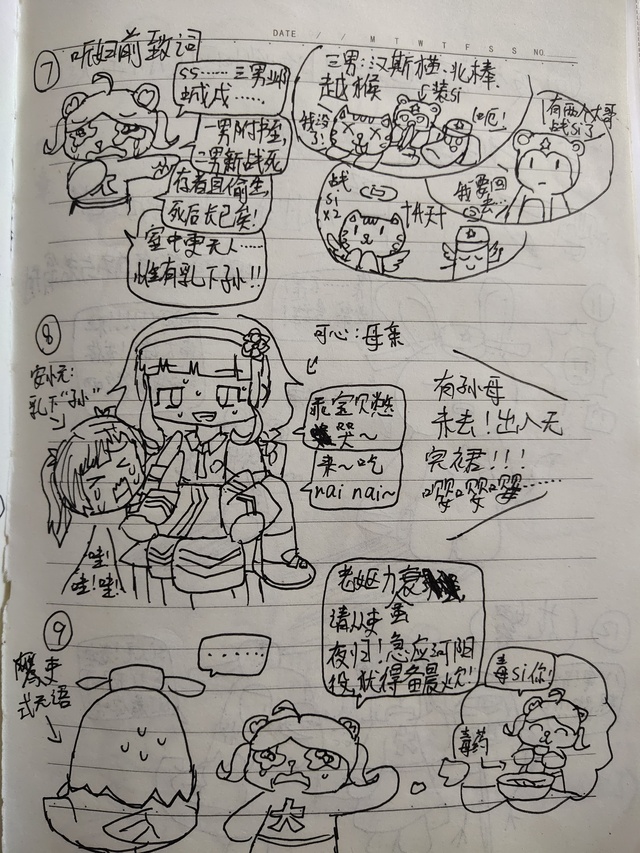 DATE / / M T W T F S S NO.
⑦
听妇前致词
SS……三男邺
城戍……
一男附书至,
二男新战死
存者且偷生,
死后长已矣!
室中更无人……
惟有乳下孙!!
三男:汉斯猫、北棒、
越猴
装si
我没
了!
呃!
有两个大哥
战si了
我要回
去…
战
si
x2
⑧
可心:母亲
安小元:
乳下“孙”
乖宝贝憨
笑~
来~吃
nai nai~
有孙母
未去!出入无
完裙!!!
嘤嘤嘤……
哇!
哇!哇!
⑨
老妪力衰
请从吏
夜归!急应河阳
役,犹得备晨炊!
吏
式无语
……
大
毒si你!
毒药